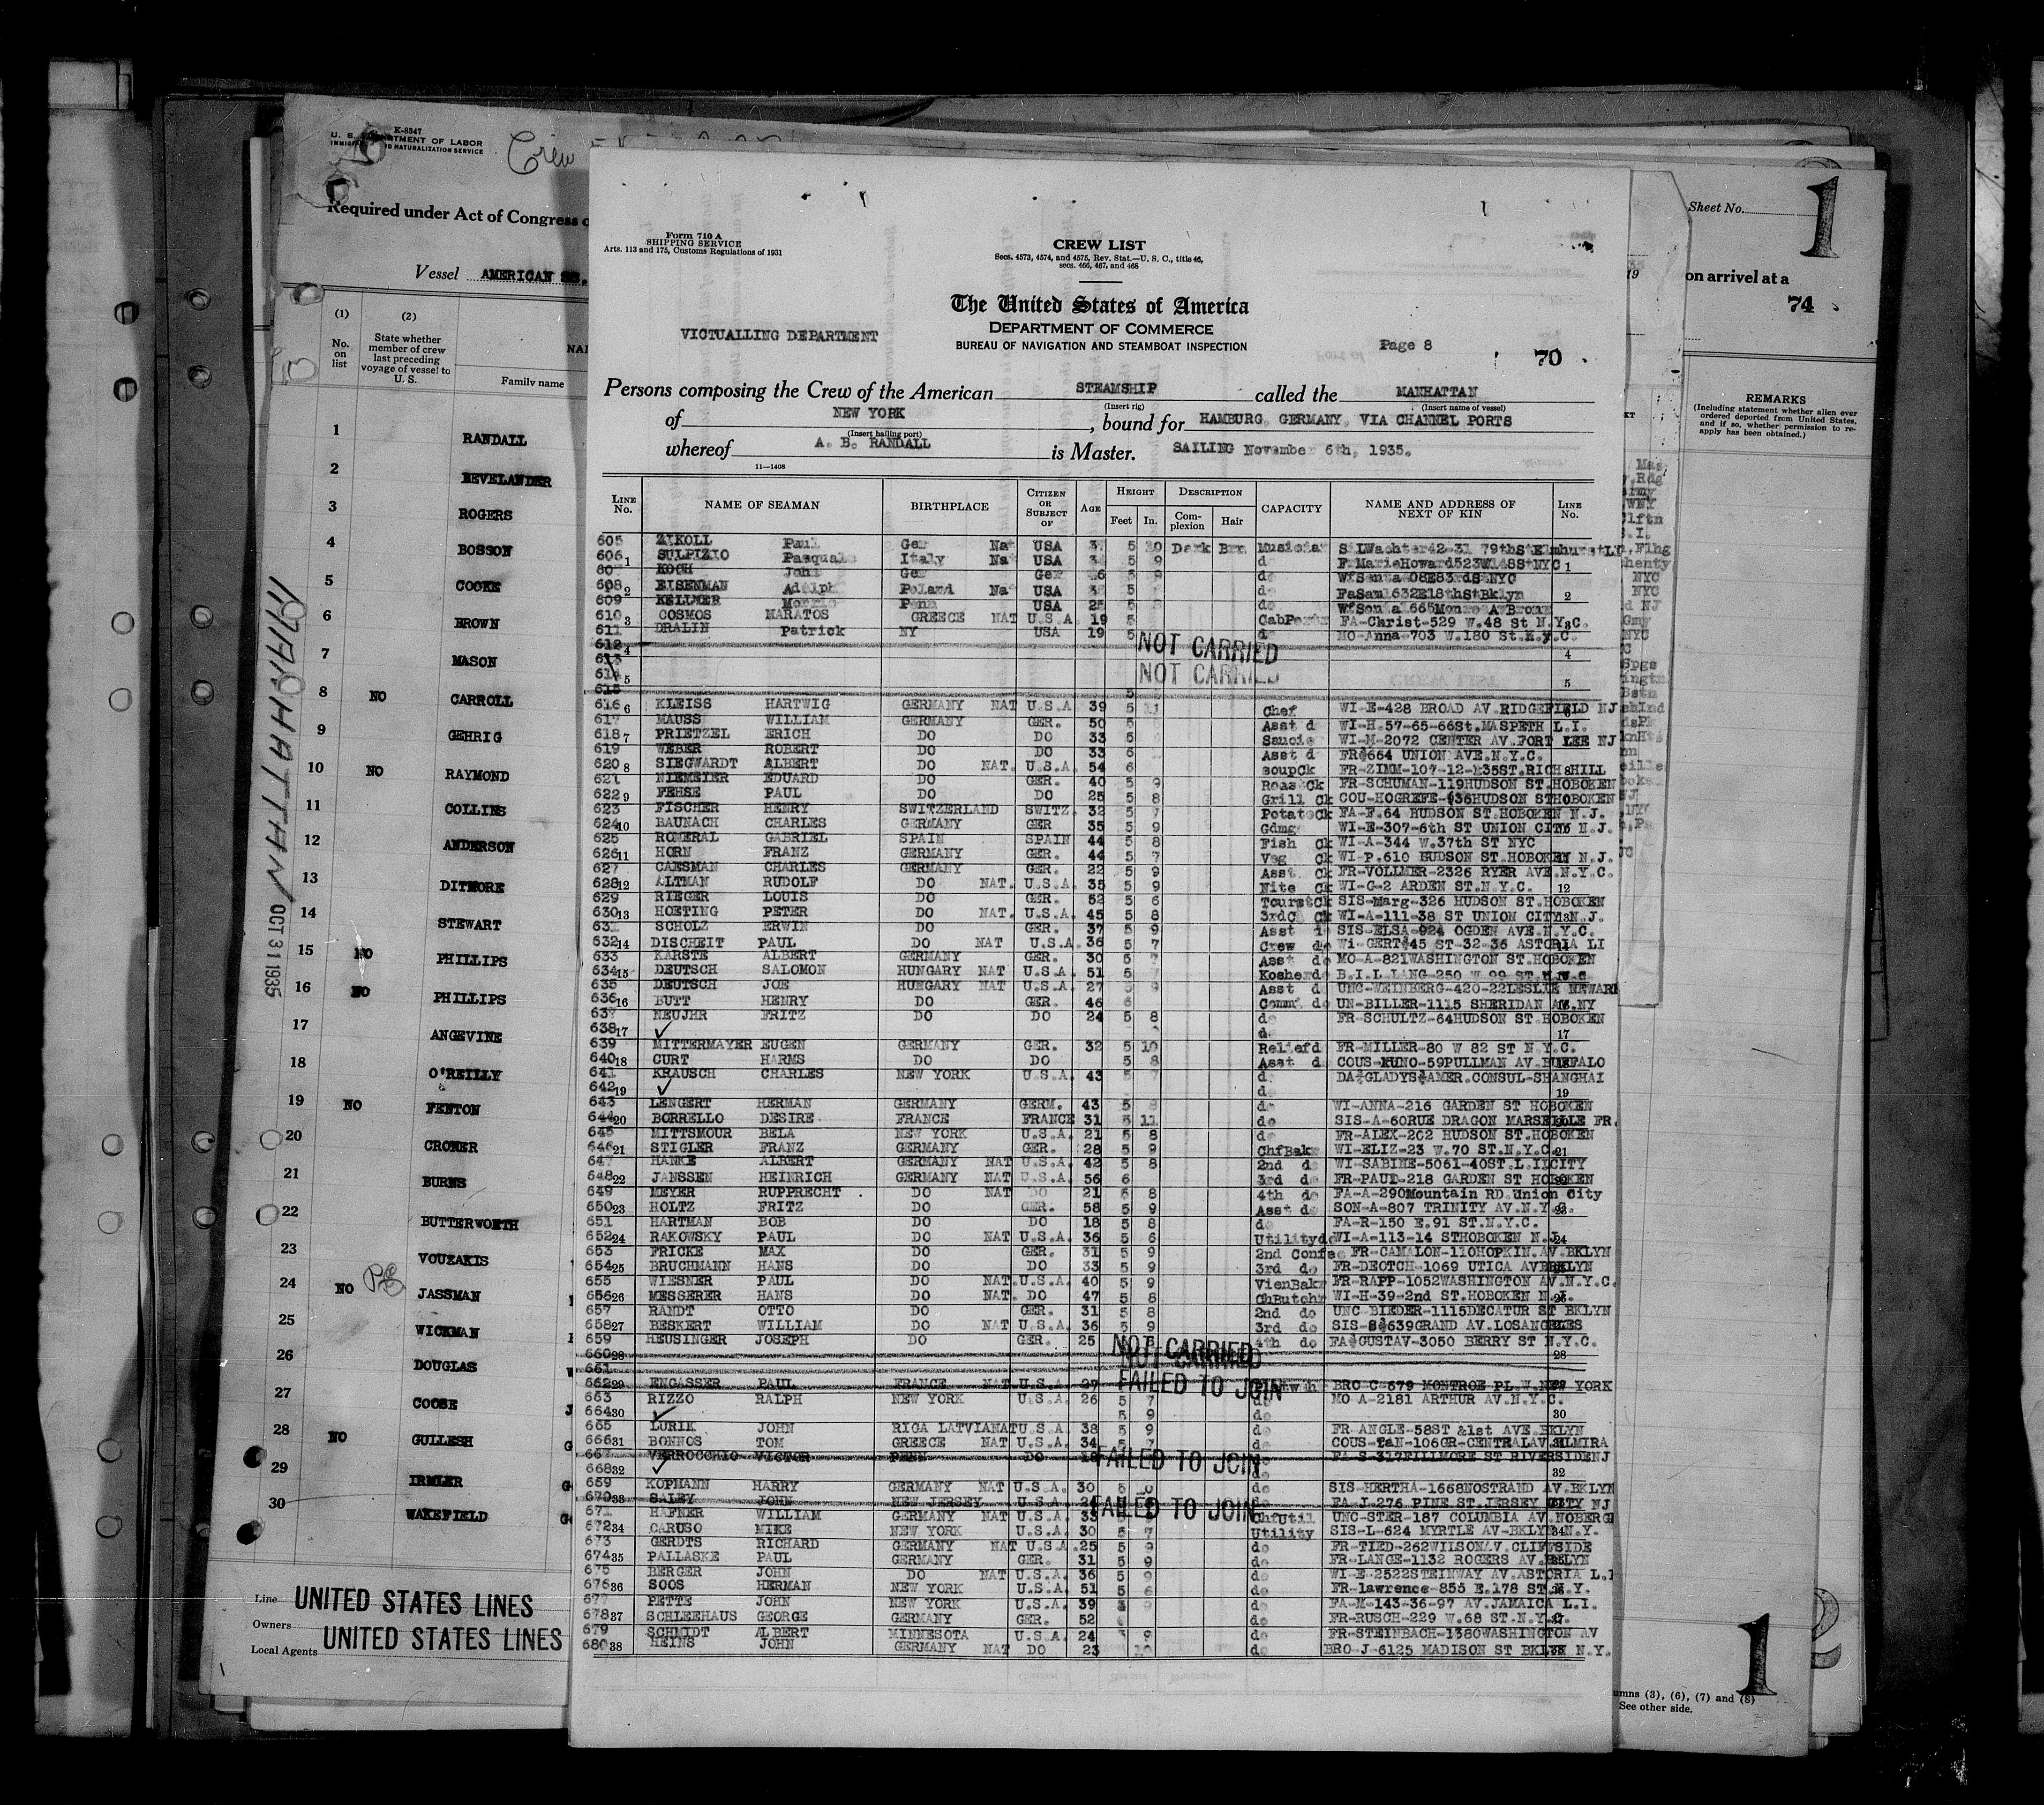 K-8347
U. S. DEPARTMENT OF LABOR
NATURALIZATION SERVICE
Crew
Required under Act of Congress
Vessel AMERICAN SS.
(1) (2)
No. on list
State whether member of crew last preceding voyage of vessel to U. S.
Family name
1 RANDALL
2 BEVELANDER
3 ROGERS
4 BOSSON
5 COOKE
6 BROWN
7 MASON
8 NO CARROLL
9 GEHRIG
10 NO RAYMOND
11 COLLINS
12 ANDERSON
13 DITMORE
14 STEWART
15 NO PHILLIPS
16 NO PHILLIPS
17 ANGEVINE
18 O'REILLY
19 NO FENTON
20 CRONER
21 BURNS
22 BUTTERWORTH
23 VOUZAKIS
24 NO JASSMAN
25 WICKMAN
26 DOUGLAS
27 COOSE
28 NO GULLESH
29 IRMLER
30 WAKEFIELD
MANHATTAN OCT 31 1935
Line UNITED STATES LINES
Owners
Local Agents UNITED STATES LINES
Form 710 A
SHIPPING SERVICE
Arts. 113 and 175, Customs Regulations of 1931
CREW LIST
Secs. 4573, 4574, and 4575, Rev. Stat.—U. S. C., title 46,
secs. 466, 467, and 468
The United States of America
DEPARTMENT OF COMMERCE
BUREAU OF NAVIGATION AND STEAMBOAT INSPECTION
VICTUALLING DEPARTMENT
Page 8
70
Persons composing the Crew of the American STEAMSHIP called the MANHATTAN
(Insert rig) (Insert name of vessel)
of NEW YORK, bound for HAMBURG, GERMANY, VIA CHANNEL PORTS
(Insert hailing port)
whereof A. B. RANDALL is Master. SAILING November 6th, 1935.
11—1408
LINE No. NAME OF SEAMAN BIRTHPLACE CITIZEN OR SUBJECT OF AGE HEIGHT DESCRIPTION CAPACITY NAME AND ADDRESS OF NEXT OF KIN LINE No.
Feet In. Complexion Hair
605 ZIKOLL Paul Ger Nat USA 37 5 10 Dark Brn Musician
606 1 SULPIZIO Pasquale Italy Na USA 5 9 do 1
KOCH John Ger Ger 5 9 do
608 2 EISENMAN Adolph Poland Na USA 5 do FaSam 632E18thStBklyn 2
609 KELLNER Morris Penn USA 25 5 do
610 3 COSMOS MARATOS GREECE NAT U.S.A. 19 5 FA-Christ-529 W.48 St N.Y.C. 3
611 DRALIN Patrick NY USA 19 5 do MO-Anna-703 W.180 St.N.Y.C.
612 4 NOT CARRIED 4
613
614 5 NOT CARRIED 5
615
616 6 KLEISS HARTWIG GERMANY NAT U.S.A 39 5 11 Chef WI-E-428 BROAD AV.RIDGEFIELD NJ
617 MAUSS WILLIAM GERMANY GER. 50 5 Asst d WI-H.57-65-66St.MASPETH L.I.
618 7 PRIETZEL ERICH DO DO 33 5 WI-M-2072 CENTER AV.FORT LEE NJ
619 WEBER ROBERT DO DO 33 Asst d FR-664 UNION AVE.N.Y.C.
620 8 SIEGWARDT ALBERT DO NAT. U.S.A. 54 6 soupCk FR-ZIMM-107-12-135ST.RICH HILL 8
621 NIEMEIER EDUARD DO GER. 40 5 9 RoastCk FR-SCHUMAN-119HUDSON ST.HOBOKEN
622 9 FEHSE PAUL DO DO 25 5 8 Grill Ck COU-HOGREFE-636HUDSON STHOBOKEN
623 FISCHER HENRY SWITZERLAND SWITZ. 32 5 7 PotatoCk FA-F.64 HUDSON ST.HOBOKEN N.J.
624 10 BAUNACH CHARLES GERMANY GER 35 5 9 Gdmg WI-E-307-6th ST UNION CITY N.J.
625 ROMERAL GABRIEL SPAIN SPAIN 44 5 8 Fish Ck WI-A-344 W.37th ST NYC
626 11 HORN FRANZ GERMANY GER. 44 5 7 Veg Ck WI-P.610 HUDSON ST.HOBOKEN N.J.
627 CAESMAN CHARLES GERMANY GER. 22 5 9 Asst. Ck FR-VOLLMER-2326 RYER AVE.N.Y.C.
628 12 ALTMAN RUDOLF DO NAT. U.S.A. 35 5 9 Nite Ck WI-G-2 ARDEN ST.N.Y.C. 12
629 RIEGER LOUIS DO GER. 52 5 6 TouristCk SIS-Marg-326 HUDSON ST.HOBOKEN
630 13 HOETING PETER DO NAT. U.S.A. 45 5 8 3rdC Ck WI-A-111-38 ST UNION CITY N.J. 13
631 SCHOLZ ERWIN DO GER. 37 5 9 Asst d SIS-ELSA-924 OGDEN AVE.N.Y.C.
632 14 DISCHEIT PAUL DO NAT U.S.A. 36 5 7 Crew do Wi-GERT-45 ST-32-36 ASTORIA LI
633 KARSTE ALBERT GERMANY GER. 30 5 Asst do MO-A-821WASHINGTON ST.HOBOKEN
634 15 DEUTSCH SALOMON HUNGARY NAT U.S.A. 51 5 Kosherd B.I.L LANG-250 W 99 ST.N.Y.C
635 DEUTSCH JOE HUNGARY NAT U.S.A. 27 5 9 Asst d UNC-WEINBERG-420-22LESLIE NEWARK
636 16 BUTT HENRY DO GER. 46 6 Comm. do UN-BILLER-1115 SHERIDAN AV.NY
637 NEUJHR FRITZ DO DO 24 5 8 do FR-SCHULTZ-64HUDSON ST.HOBOKEN
638 17 ✓ do 17
639 MITTERMAYER EUGEN GERMANY GER. 32 5 10 Reliefd FR-MILLER-80 W 82 ST N.Y.C.
640 18 CURT HARMS DO DO 5 8 Asst d COUS-KUNO-59PULLMAN AV.BUFFALO
641 KRAUSCH CHARLES NEW YORK U.S.A. 43 5 7 do DA-GLADYS-AMER.CONSUL-SHANGHAI
642 19 ✓ do 19
643 LENGERT HERMAN GERMANY GERM. 43 5 8 do WI-ANNA-216 GARDEN ST HOBOKEN
644 20 BORRELLO DESIRE FRANCE FRANCE 31 5 11 do SIS-A-60RUE DRAGON MARSEILLE FR.
645 MITTSMOUR BELA NEW YORK U.S.A. 21 5 8 do FR-ALEX-202 HUDSON ST.HOBOKEN
646 21 STIGLER FRANZ GERMANY GER. 28 5 9 ChfBakr WI-ELIZ-23 W.70 ST.N.Y.C. 21
647 HANKE ALBERT GERMANY NAT U.S.A. 42 5 8 2nd do WI-SABINE-5061-40ST.L.I.CITY
648 22 JANSSEN HEINRICH GERMANY NAT U.S.A. 56 6 3rd do FR-PAUL-218 GARDEN ST HOBOKEN
649 MEYER RUPPRECHT DO NAT DO 21 6 8 4th do FA-A-290Mountain RD.Union City
650 23 HOLTZ FRITZ DO GER. 58 5 9 Asst do SON-A-807 TRINITY AV.N.Y.C.
651 HARTMAN BOB DO DO 18 5 8 do FA-R-150 E.91 ST.N.Y.C.
652 24 RAKOWSKY PAUL DO NAT U.S.A. 36 5 6 Utilitydo WI-A-113-14 STHOBOKEN N.J. 24
653 FRICKE MAX DO GER. 31 5 9 2nd Confec FR-CAMALON-110HOPKIN.AV.BKLYN
654 25 BRUCHMANN HANS DO DO 33 5 9 3rd do FR-DEOTCH-1069 UTICA AVBRKLYN
655 WIESNER PAUL DO NAT. U.S.A. 40 5 9 VienBakr FR-RAPP-1052WASHINGTON AV.N.Y.C.
656 26 MESSERER HANS DO NAT. DO 47 5 8 ChButchr WI-H-39-2nd ST.HOBOKEN N.J.
657 RANDT OTTO DO GER. 31 5 8 2nd do UNC BIEDER-1115DECATUR ST BKLYN
658 27 BESKERT WILLIAM DO NAT U.S.A. 36 5 9 3rd do SIS-S-639GRAND AV.LOSANGELES
659 HEUSINGER JOSEPH DO GER. 25 5 8 4th do FA-GUSTAV-3050 BERRY ST N.Y.C.
660 28 NOT CARRIED 28
661 NOT CARRIED
662 29 ENGASSER PAUL FRANCE NAT U.S.A 27 FAILED TO JOIN BRO C-679 MONTROE PL.W.NEW YORK
663 RIZZO RALPH NEW YORK U.S.A. 26 5 7 do MO A-2181 ARTHUR AV.N.Y.C.
664 30 ✓ 5 9 do 30
665 LURIK JOHN RIGA LATVIANAT U.S.A. 38 5 9 do FR ANGLE-58ST &1st AVE.BKLYN
666 31 BONNOS TOM GREECE NAT U.S.A. 34 5 7 do COUS-PAN-106GR-CENTRALAV.ELMIRA
667 VERROCCHIO VICTOR PENN DO 18 FAILED TO JOIN FA-S-317FILLMORE ST RIVERSIDENJ
668 32 ✓ do 32
669 KOPMANN HARRY GERMANY NAT U.S.A. 30 5 do SIS-HERTHA-1668NOSTRAND AV.BKLYN
670 33 SALEY JOHN NEW JERSEY U.S.A. FAILED TO JOIN do FA J-276 PINE ST.JERSEY CITY NJ
671 HAFNER WILLIAM GERMANY NAT U.S.A. 33 ChfUtil UNC-STER-187 COLUMBIA AV.NOBERG
672 34 CARUSO MIKE NEW YORK U.S.A. 30 5 7 Utility SIS-L-624 MYRTLE AV-BKLYN N.Y. 34
673 GERDTS RICHARD GERMANY NAT U.S.A. 25 5 9 do FR-TIED-262WILSONAV.CLIFFSIDE
674 35 PALLASKE PAUL GERMANY GER. 31 5 9 do FR-LANGE-1132 ROGERS AV.BKLYN
675 BERGER JOHN DO NAT U.S.A. 36 5 9 do WI-E-2522STEINWAY AV.ASTORIA L.I
676 36 SOOS HERMAN NEW YORK U.S.A. 51 5 6 do FR-lawrence-855 E.178 ST.N.Y.
677 PETTE JOHN NEW YORK U.S.A. 39 9 do FA-M-143-36-97 AV.JAMAICA L.I.
678 37 SCHLEEHAUS GEORGE GERMANY GER. 52 do FR-RUSCH-229 W.68 ST.N.Y.C.
679 SCHMIDT ALBERT MINNESOTA U.S.A. 24 9 do FR-STEINBACH-1380WASHINGTON AV
680 38 HEINS JOHN GERMANY NAT DO 23 10 do BRO-J-6125 MADISON ST BKLYN N.Y.
Sheet No. 1
on arrival at a
74
REMARKS
(Including statement whether alien ever ordered deported from United States, and if so, whether permission to reapply has been obtained.)
umns (3), (6), (7) and (8)
See other side.
1